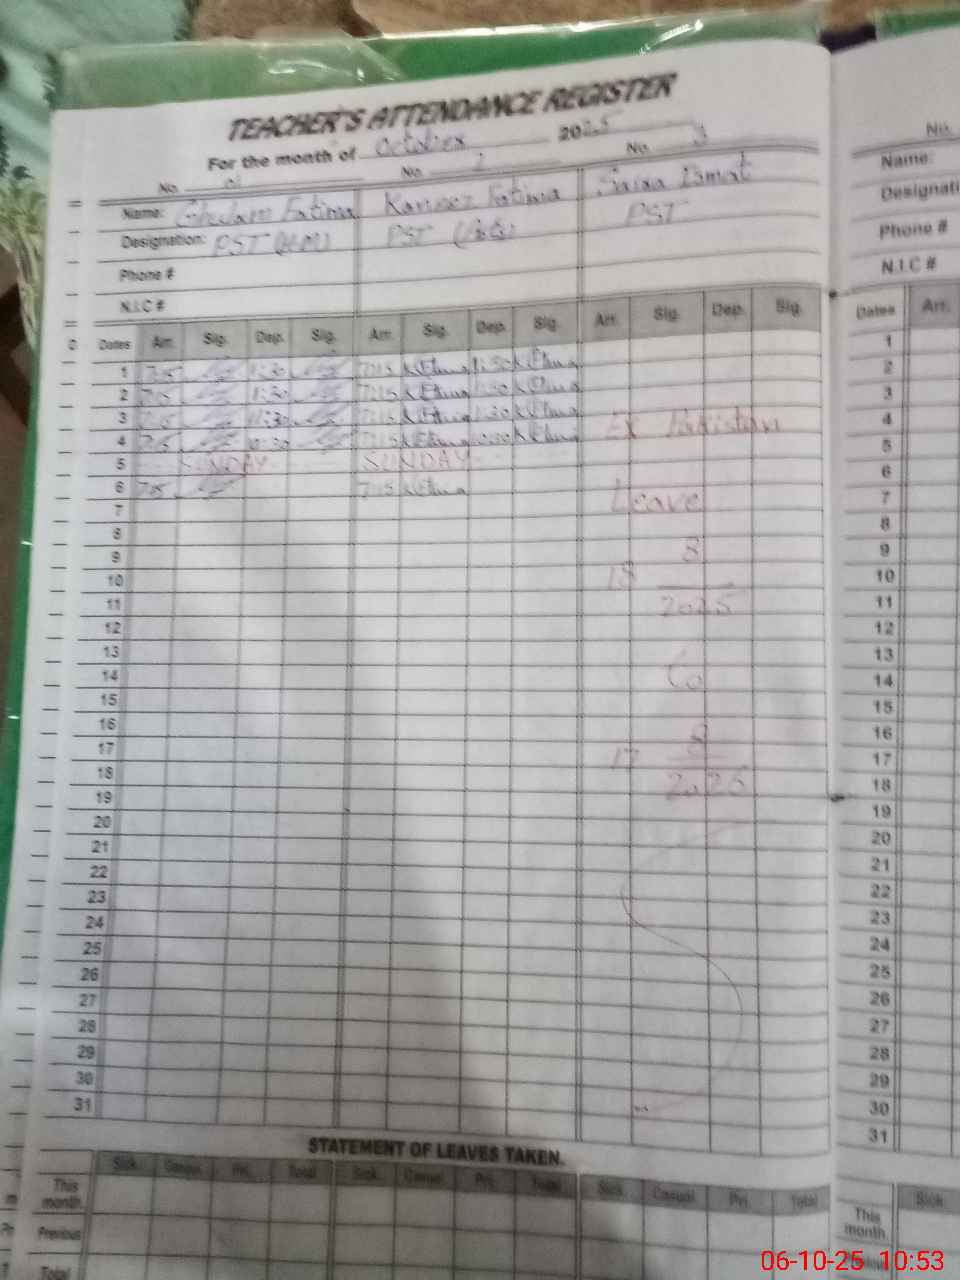 TEACHER'S ATTENDANCE REGISTER
For the month of October 2025
No. 01 No. 2 No. 3
Name: Ghulam Fatima Kaneez Fatima Ismat
Designation: PST (H.M) PST PST
Phone #
N.I.C #
Dates Arr. Sig. Dep. Sig. Arr. Sig. Dep. Sig. Arr. Sig. Dep. Sig.
1 7:15 11:30 7:15 K.Fatima 11:30 K.Fatima
2 7:15 11:30 7:15 K.Fatima 11:30 K.Fatima
3 7:15 11:30 7:15 K.Fatima 11:30 K.Fatima
4 7:15 10:30 7:15 K.Fatima 10:30 K.Fatima Ex Pakistan
5 SUNDAY SUNDAY
6 7:15 7:15 K.Fatima
7 Leave
8
9 8
10 18
11 2025
12
13
14 to
15
16
17 17 8
18 2026
19
20
21
22
23
24
25
26
27
28
29
30
31
STATEMENT OF LEAVES TAKEN.
Sick. Casual. Pri. Total Sick. Casual Pri. Total Sick. Casual Pri. Total
This month.
Previous
Total
No.
Name:
Designati
Phone #
N.I.C #
Dates Arr.
1
2
3
4
5
6
7
8
9
10
11
12
13
14
15
16
17
18
19
20
21
22
23
24
25
26
27
28
29
30
31
Sick
This month.
06-10-25 10:53